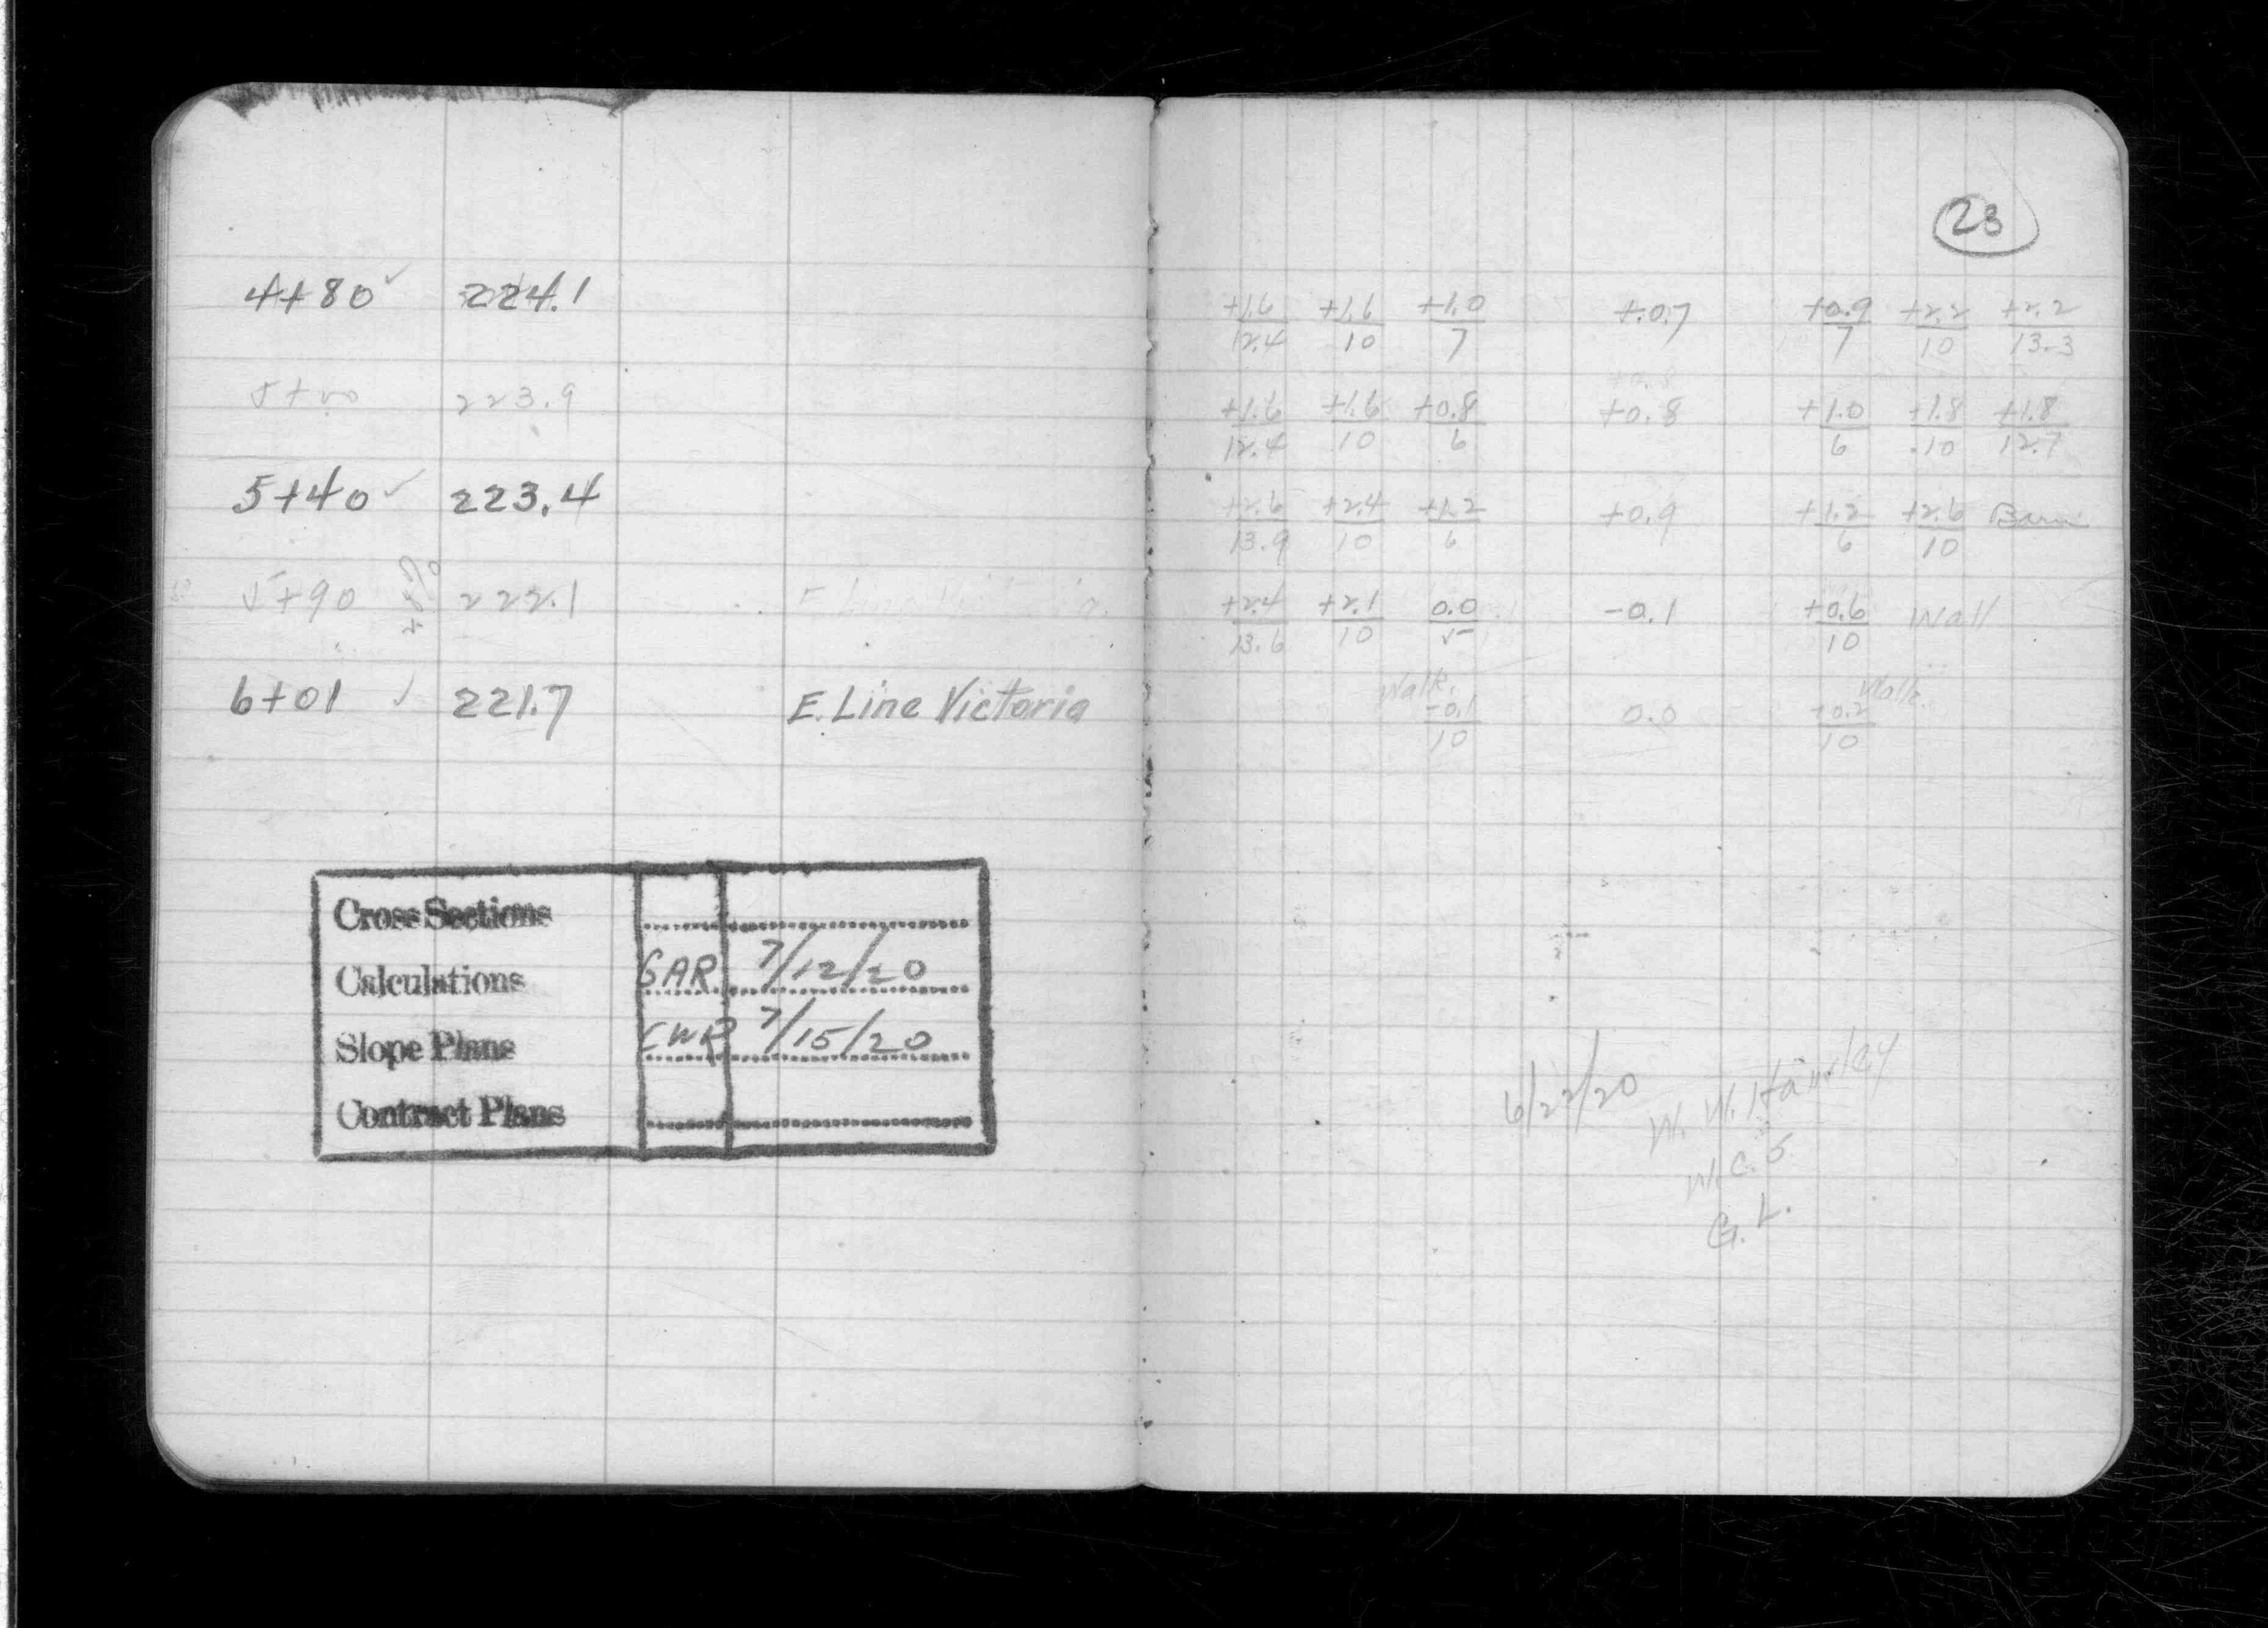 23
4+80 ✓ 224.1
+1.6/12.4 +1.6/10 +1.0/7 +0.7 +0.9/7 +2.2/10 +2.2/13.3
5+00 223.9
+1.6/12.4 +1.6/10 +0.8/6 +0.8 +1.0/6 +1.8/10 +1.8/12.7
5+40 ✓ 223.4
+2.6/13.9 +2.4/10 +1.2/6 +0.9 +1.2/6 +2.6/10 Barn
5+90 222.1
+2.4/13.6 +2.1/10 0.0/5 -0.1 +0.6/10 Wall
6+01 ✓ 221.7 E. Line Victoria
Walk. Walk.
-0.1/10 0.0 -0.2/10
Cross Sections
Calculations GAR 7/12/20
Slope Plans CWR 7/15/20
Contract Plans
6/22/20
W.C.S.
G.L.